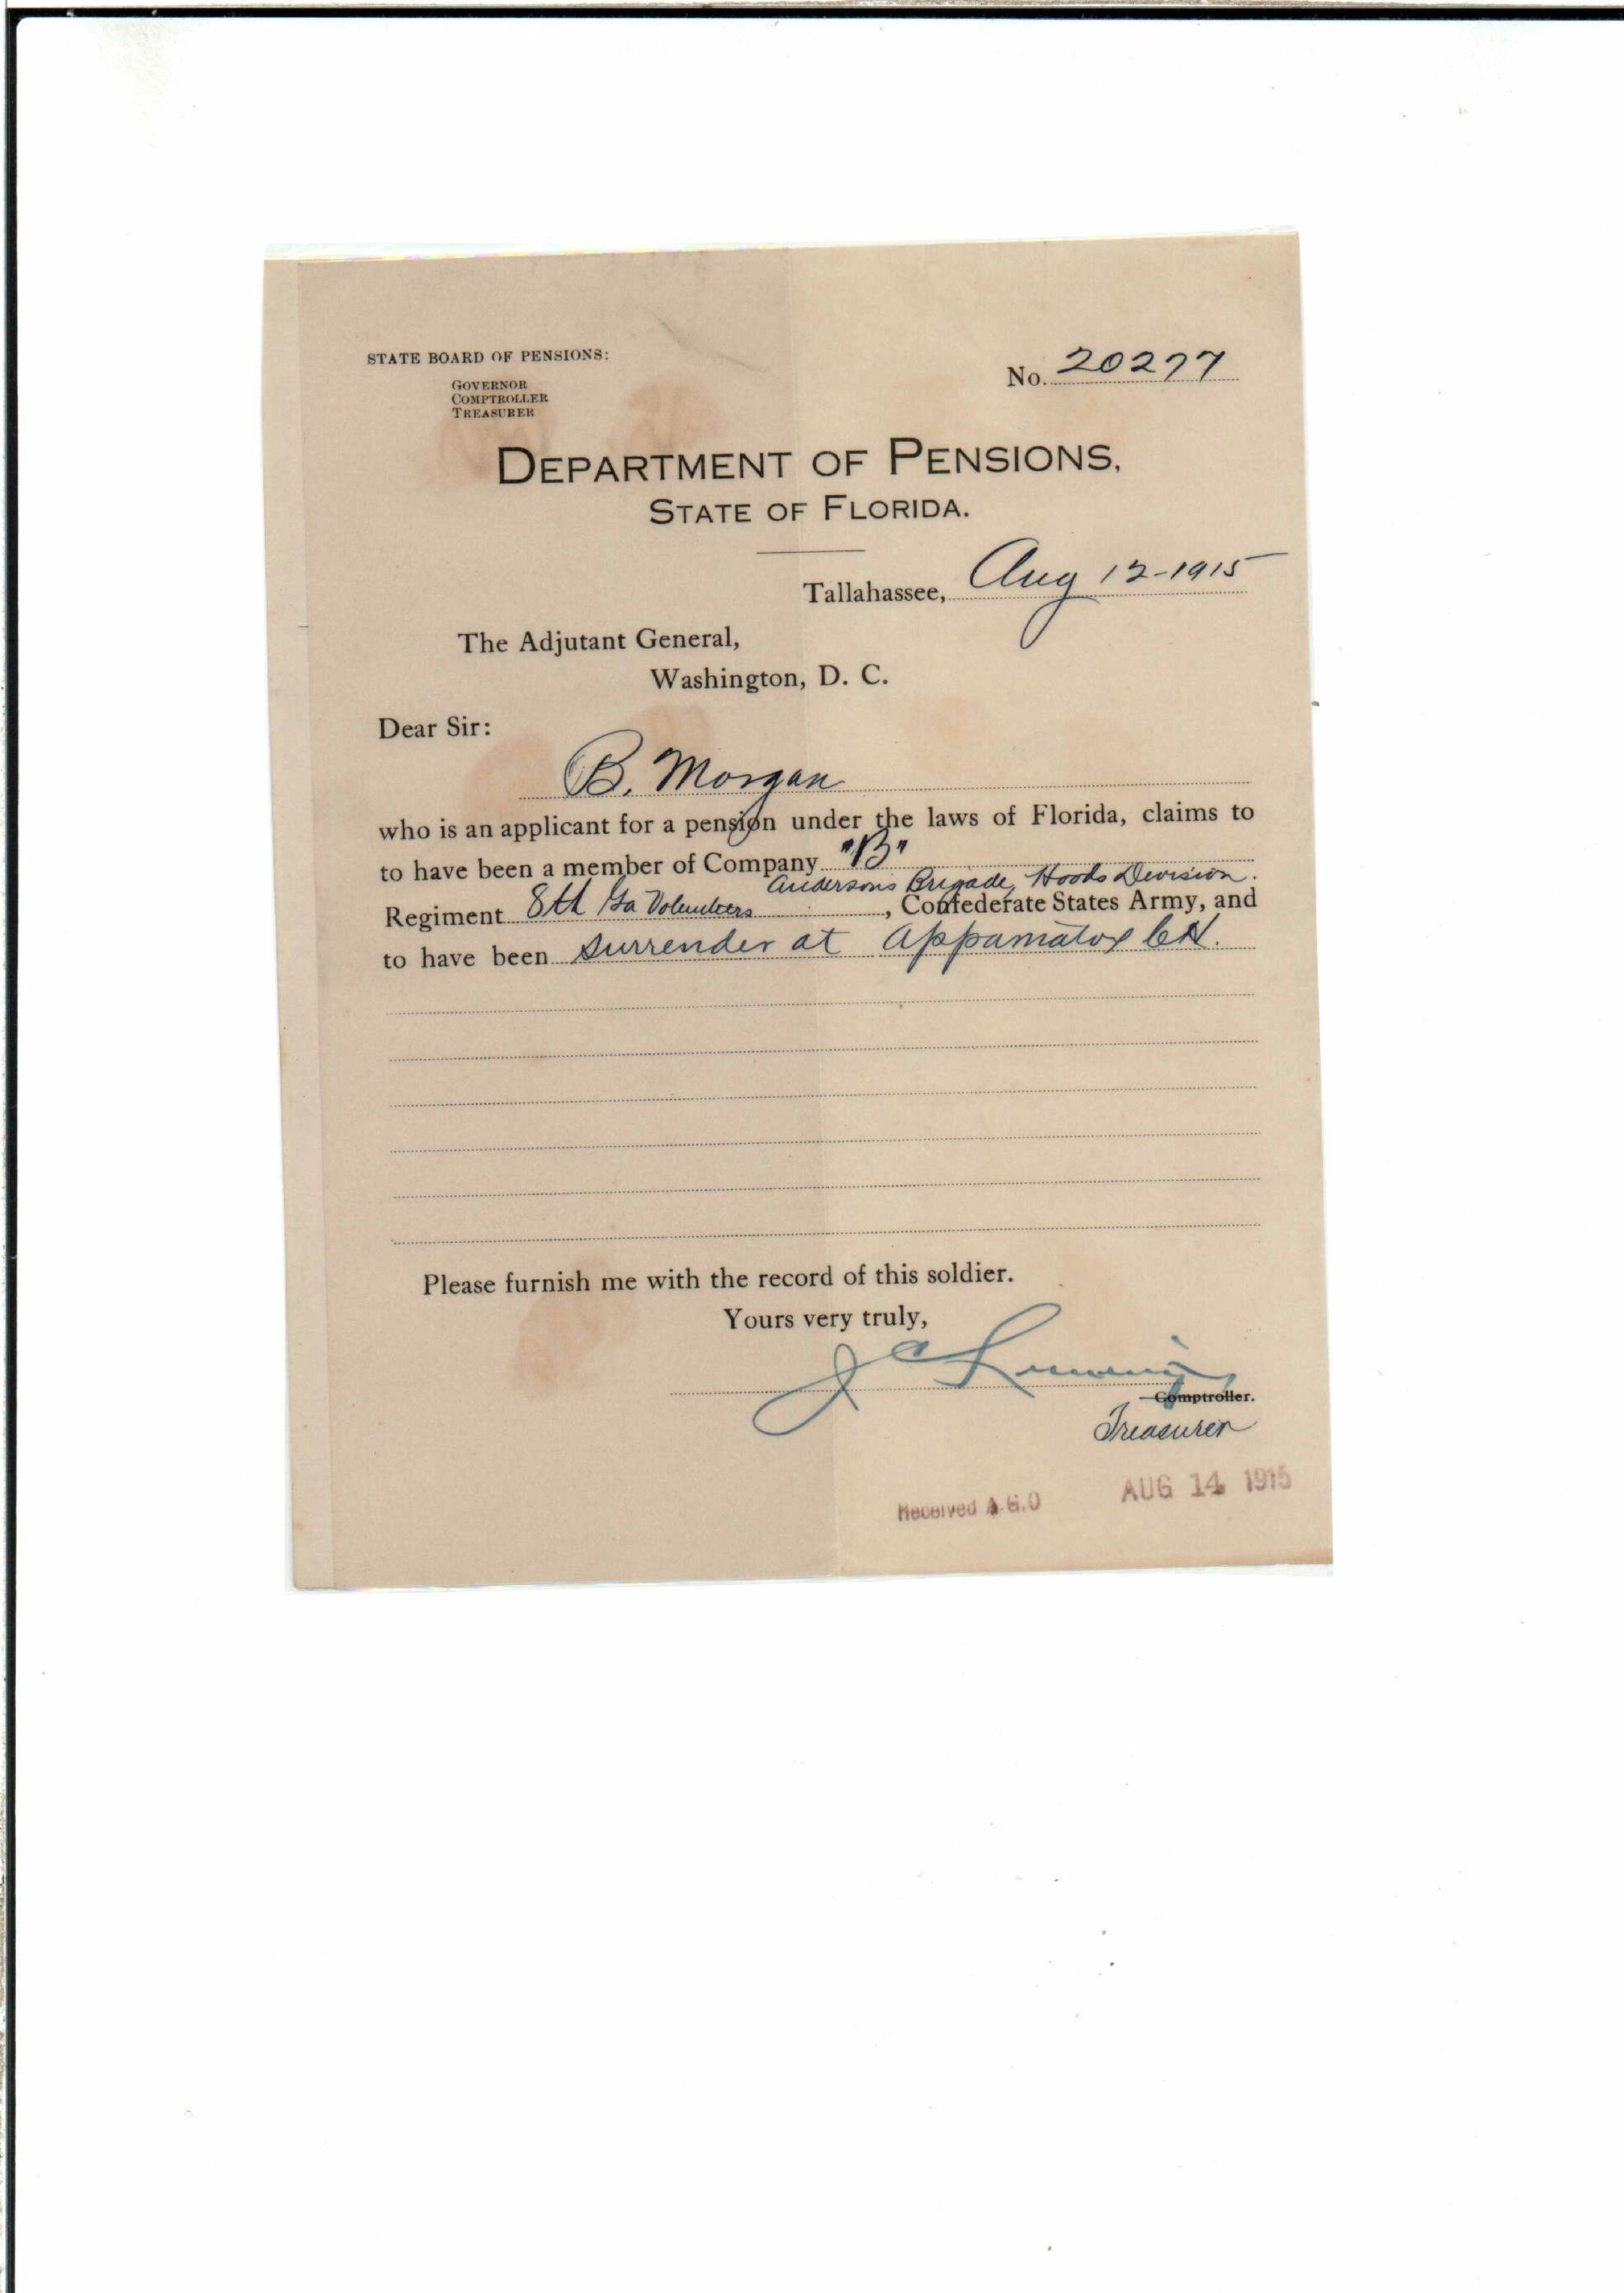 STATE BOARD OF PENSIONS:
GOVERNOR
COMPTROLLER
TREASURER
No. 20277
DEPARTMENT OF PENSIONS,
STATE OF FLORIDA.
Tallahassee, Aug 12-1915
The Adjutant General,
Washington, D. C.
Dear Sir:
B. Morgan
who is an applicant for a pension under the laws of Florida, claims to
to have been a member of Company "B"
Andersons Brigade, Hoods Devision.
Regiment 8th Ga Volunteers, Confederate States Army, and
to have been surrender at Appamatox CH.
Please furnish me with the record of this soldier.
Yours very truly,
J C
Comptroller.
Treasurer
Received A.G.O AUG 14 1915